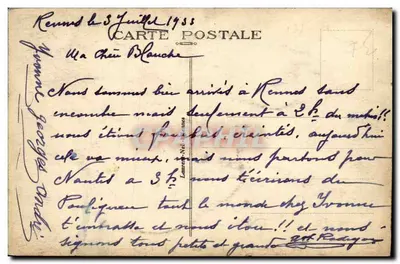 Rennes le 3 Juillet 1933
CARTE POSTALE
Ma chère Blanche
Nous sommes bien arrivés à Rennes sans
encombre mais seulement à 2h du matin!!
nous étions fourbus, éreintés, aujourd'hui
cela va mieux, mais nous partons pour
Nantes à 3h nous t'écrirons du
Pouliguen tout le monde chez Yvonne
t'embrasse et nous itou!! et nous
signons tous petits et grands
Yvonne Georges André